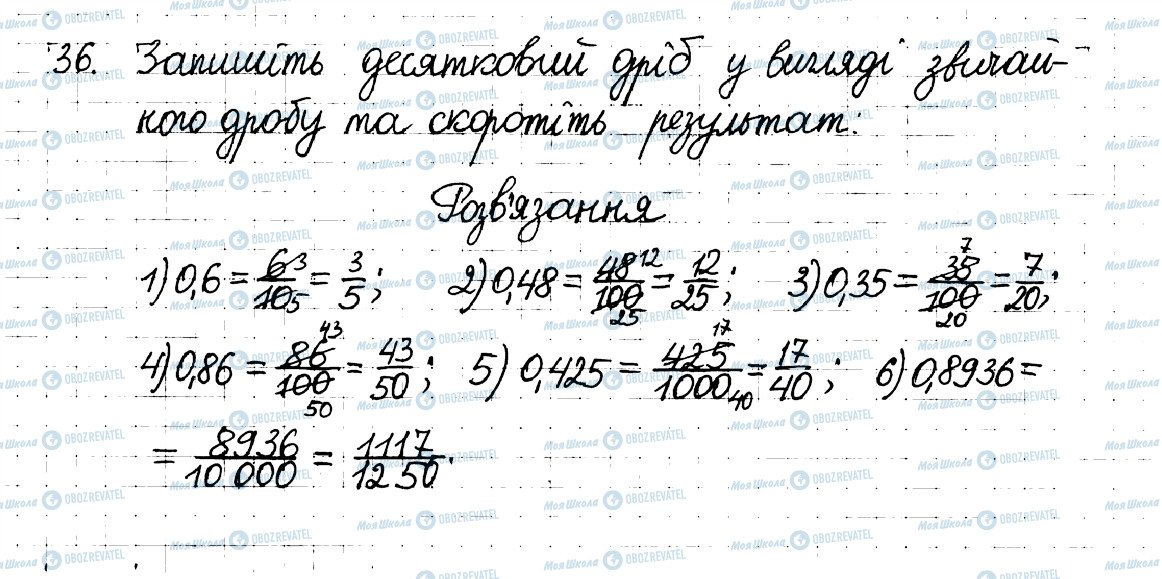 36. Запишіть десятковий дріб у вигляді звичай-
ного дробу та скоротіть результат.
Розв'язання
1) 0,6 = 6 3/10 5 = 3/5; 2) 0,48 = 48 12/100 25 = 12/25; 3) 0,35 = 35 7/100 20 = 7/20;
4) 0,86 = 86 43/100 50 = 43/50; 5) 0,425 = 425 17/1000 40 = 17/40; 6) 0,8936 =
= 8936/10 000 = 1117/1250.